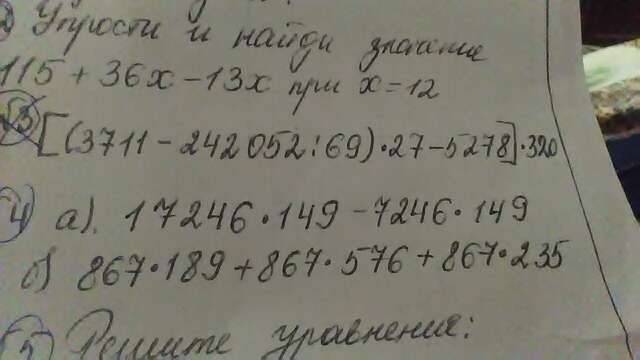 2 Упрости и найди значение
115 + 36x - 13x при x = 12
3 [(3711 - 242052 : 69) · 27 - 5278] · 320
4 а). 17246 · 149 - 7246 · 149
б) 867 · 189 + 867 · 576 + 867 · 235
5 Решите уравнения: